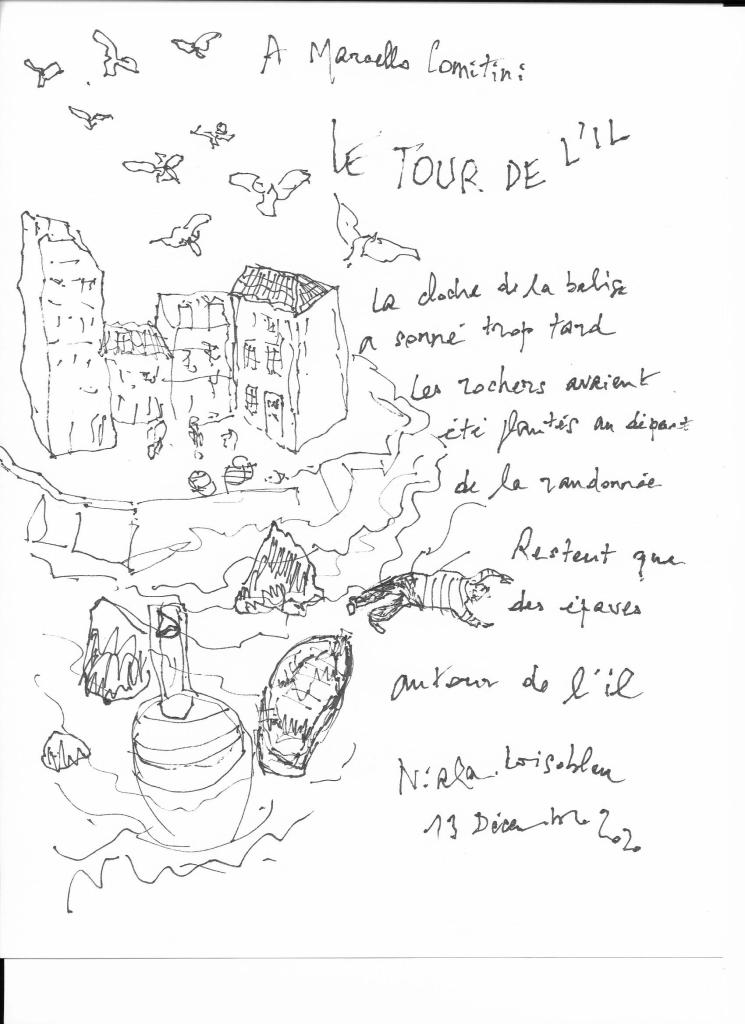 A Marcello Comitini
LE TOUR DE L'IL
La cloche de la balise
a sonné trop tard
Les rochers avaient
été plantés au départ
de la randonnée
Restent que
des épaves
autour de l'il
Niala. Loisobleu
13 Décembre 2020